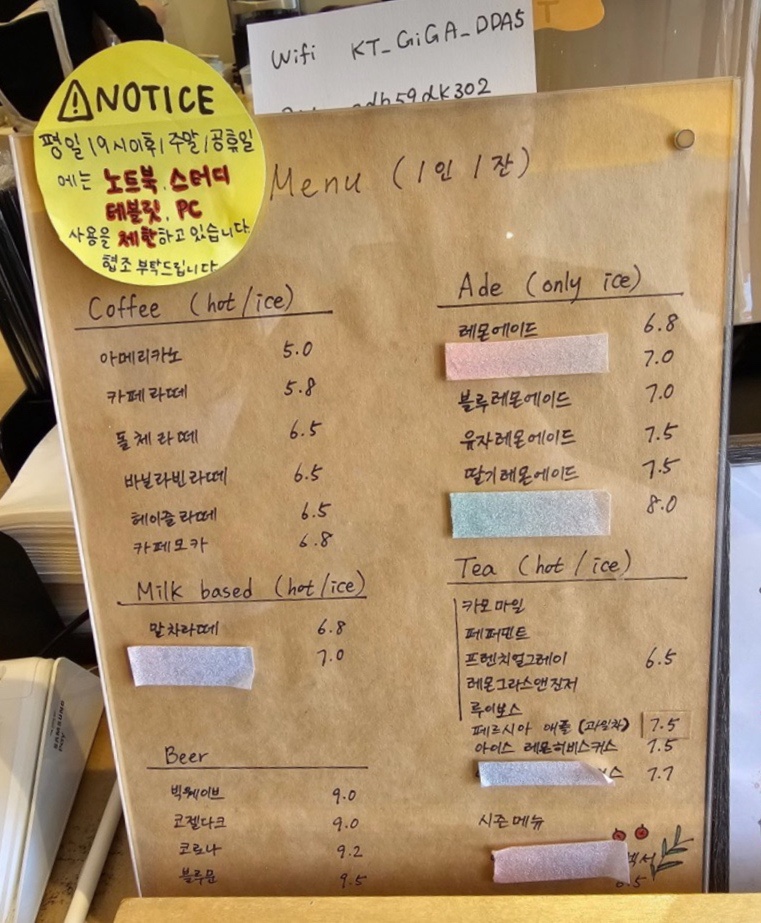 Wifi KT_GiGA_DDA5
NOTICE
평일 19시이후/주말/공휴일
에는 노트북.스터디
테블릿.PC
사용을 제한하고 있습니다.
협조 부탁드립니다
Menu (1인 1잔)
Coffee (hot/ice)
아메리카노 5.0
카페라떼 5.8
돌체라떼 6.5
바닐라빈라떼 6.5
헤이즐라떼 6.5
카페모카 6.8
Milk based (hot/ice)
말차라떼 6.8
7.0
Beer
빅웨이브 9.0
코젤다크 9.0
코로나 9.2
블루문 9.5
Ade (only ice)
레몬에이드 6.8
7.0
블루레몬에이드 7.0
유자레몬에이드 7.5
딸기레몬에이드 7.5
8.0
Tea (hot/ice)
카모마일
페퍼민트
프렌치얼그레이 6.5
레몬그라스앤진저
루이보스
페르시아 애플 (과일차) 7.5
아이스 레몬히비스커스 7.5
스 7.7
시즌메뉴